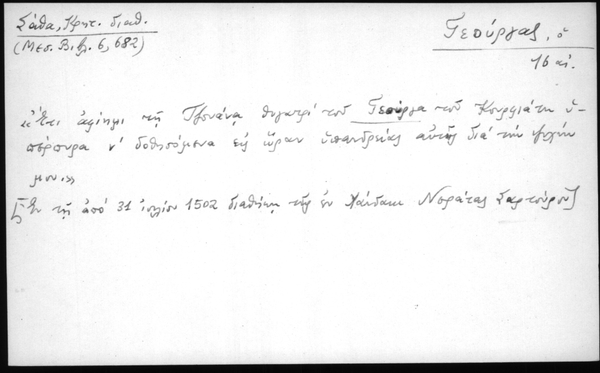 Σάθα, Κρητ. διαθ.
(Μεσ. Βιβλ. 6, 682)
Γεούργας, ὁ
16 αἰ.
«Ἔτι ἀφίημι τῇ Τζουάνα θυγατρὶ τοῦ Γεούργα τοῦ Κουρφιάτη ὑ-
πέρπυρα ν' δοθησόμενα εἰς ὥραν ὑπανδρείας αὐτῆς διὰ τὴν ψυχήν
μου.»
[Ἐν τῇ ἀπὸ 31 ἰουλίου 1502 διαθήκῃ τῆς ἐν Χάνδακι